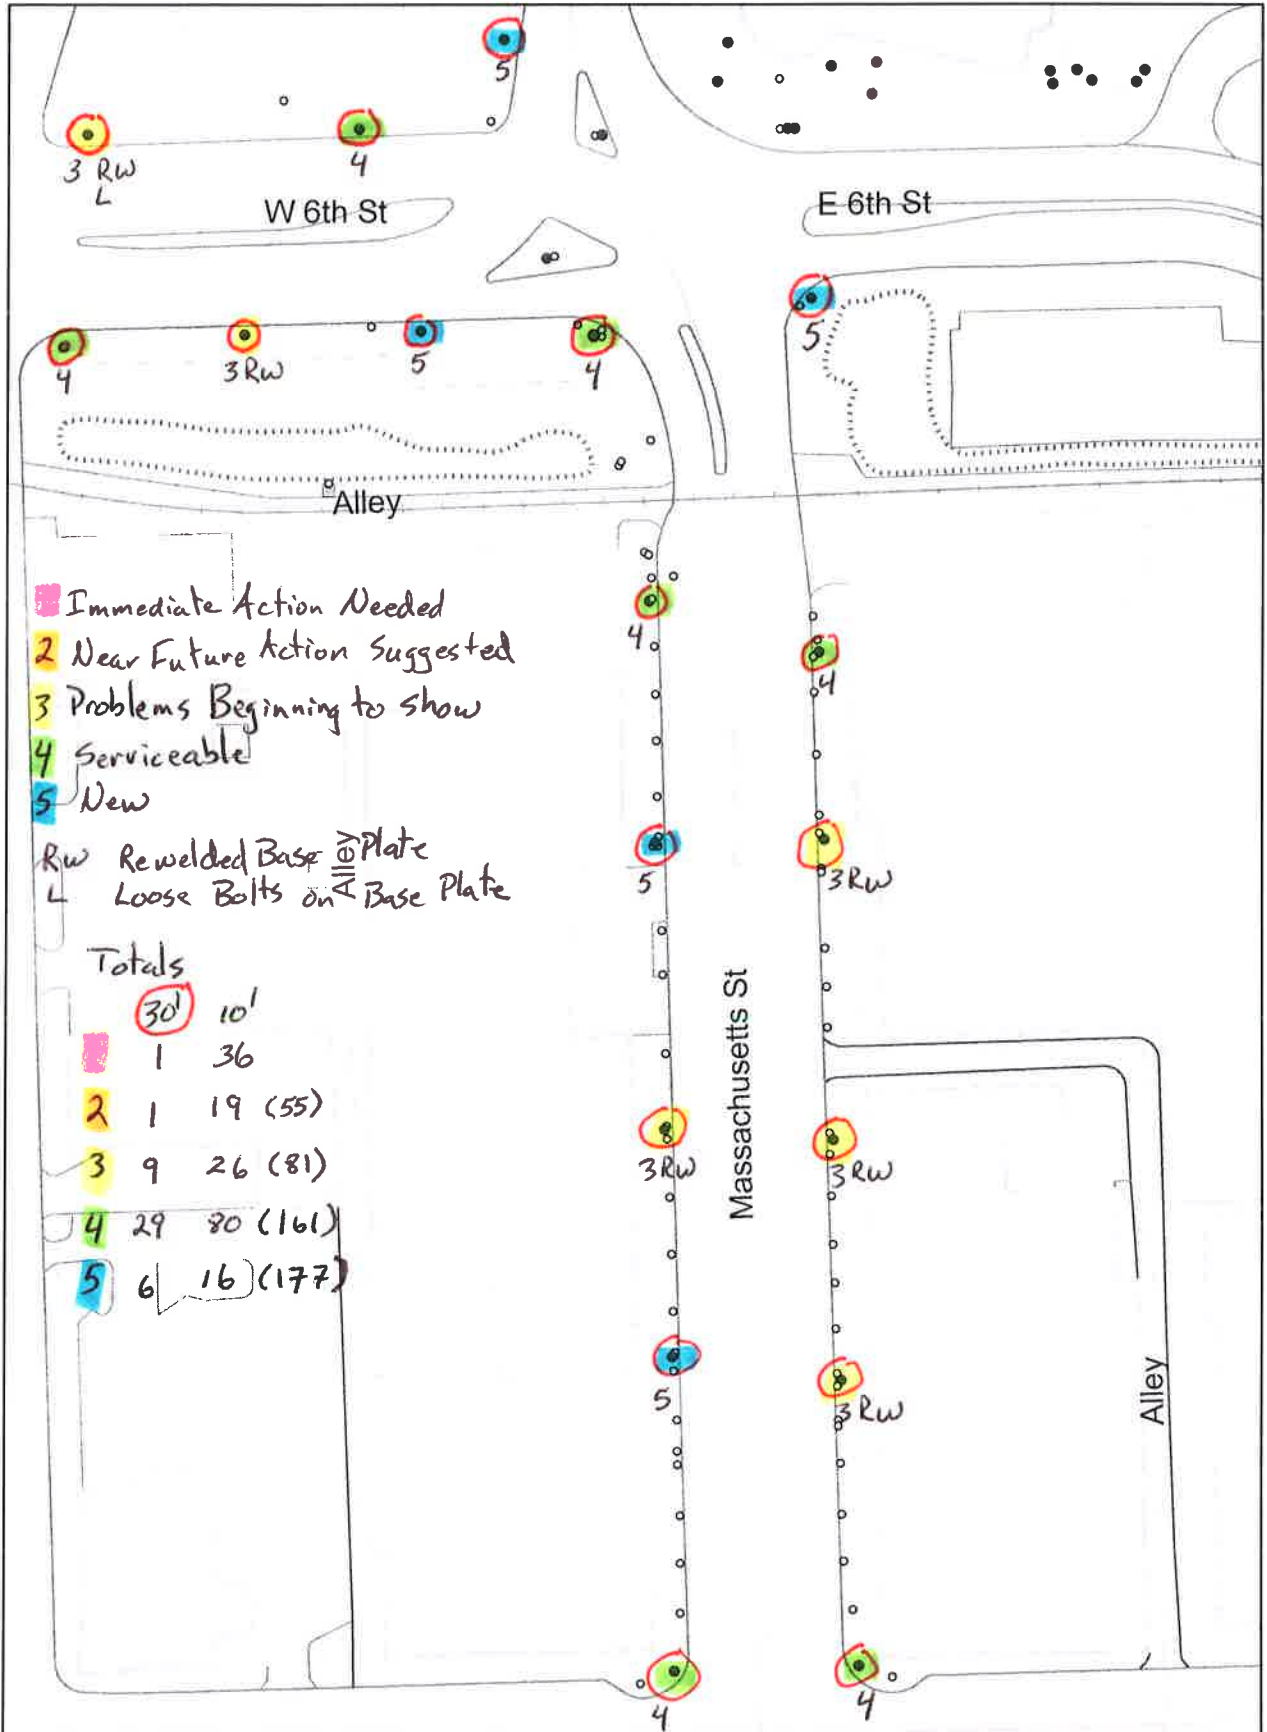 5
3 RW
L
4
W 6th St
E 6th St
5
4
3RW
5
4
Alley
Immediate Action Needed
2 Near Future Action Suggested
3 Problems Beginning to show
4 Serviceable
5 New
RW Rewelded Base Plate
L Loose Bolts on Base Plate
Alley
Totals
30' 10'
1 36
2 1 19 (55)
3 9 26 (81)
4 29 80 (161)
5 6 16 (177)
4
4
5
3RW
Massachusetts St
3RW
3RW
5
3RW
Alley
4
4